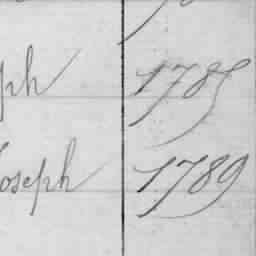 ph 1785
Joseph 1789